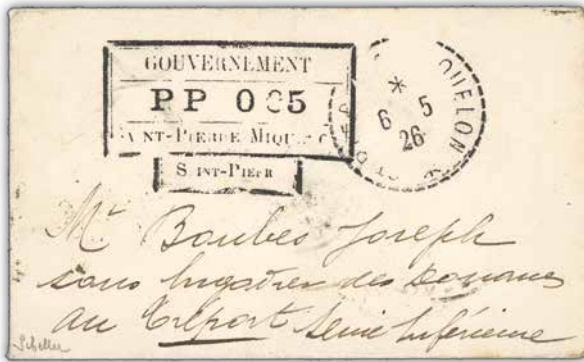 GOUVERNEMENT
PP 0 5
NT-PIERRE MIQU
S INT-PIERR
QUELON
*
6 5
26
Mr Boubes Joseph
sous brigadier des Douanes
au Tréport Seine Inférieure